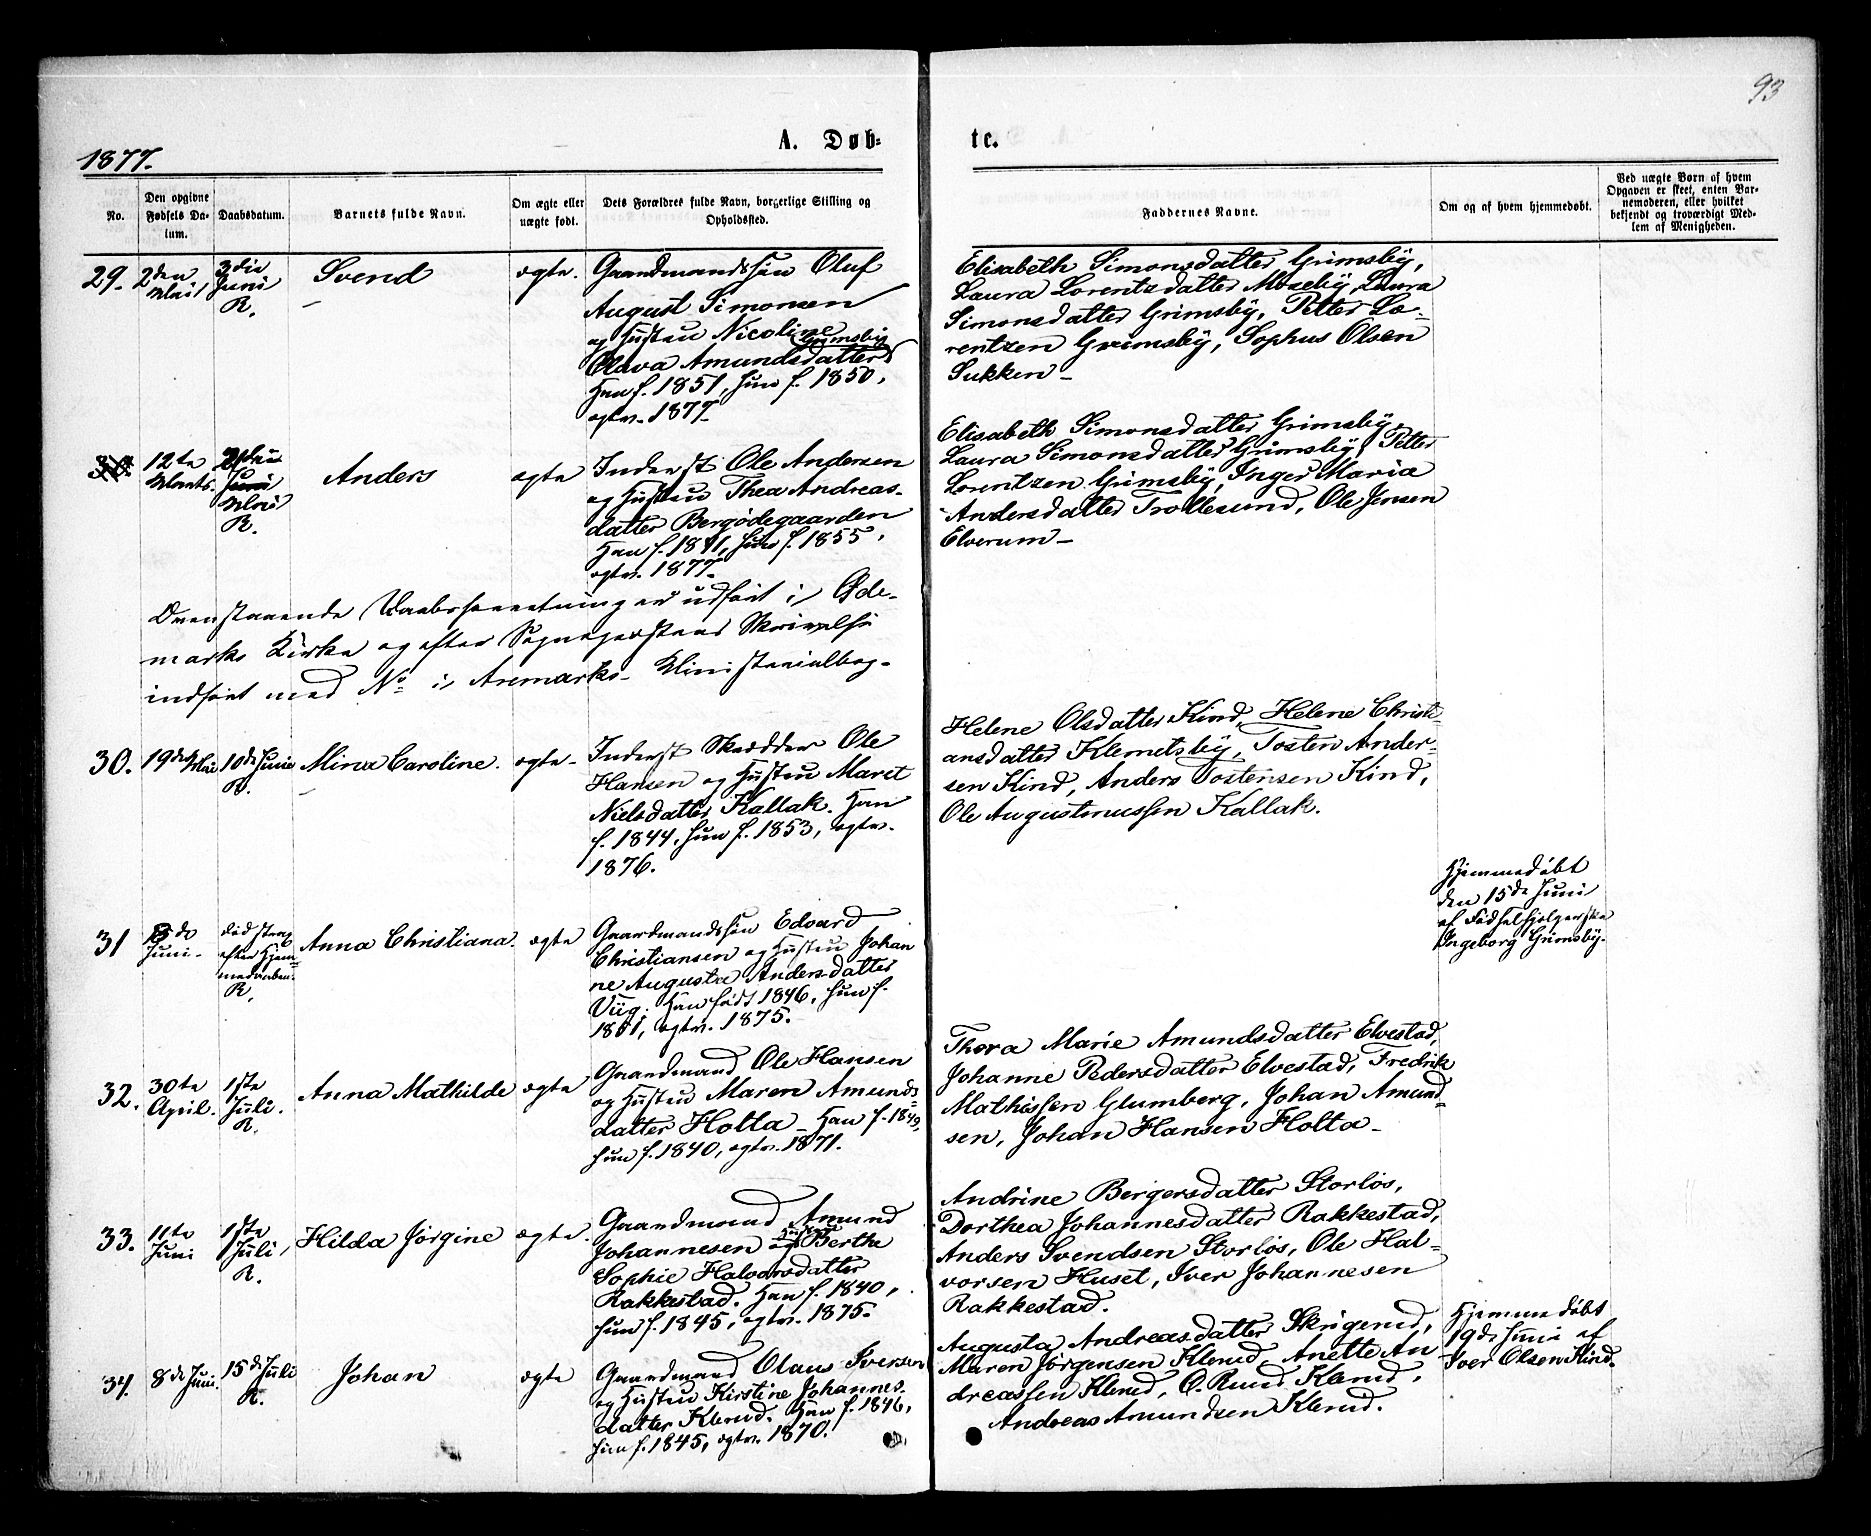 93
A. Døb-
te.
1877.
No.
Den opgivne
Fødsels Da-
tum.
Daabsdatum.
Barnets fulde Navn.
Om ægte eller
uægte født.
Dets Forældres fulde Navn, borgerlige Stilling og
Opholdssted.
Faddernes Navne.
Om og af hvem hjemmedøbt.
Ved uægte Børn af hvem
Opgaven er skeet, enten Bar-
nemoderen, eller hvilket
bekjendt og troværdigt Med-
lem af Menigheden.
29.
2den
Mai
3die
Juni
R.
Svend
ægte.
Gaardmandssøn Oluf
August Simonsen
og Hustru Nicoline
Grimsby
Olava Amundsdatter
Han f. 1851, hun f. 1850,
ægtv. 1877.
Elisabeth Simonsdatter Grimsby,
Laura Lorentzdatter Moseby, Laura
Simonsdatter Grimsby, Petter Lo-
rentzen Grimsby, Sophus Olsen
Sukken
30.
12te
Marts.
Juni
Mai
R.
Anders
ægte
Inderst Ole Andersen
og Hustru Thea Andreas-
datter Bergødegaarden
Han f. hun f. 1855,
ægtv. 1877.
Elisabeth Simonsdatter Grimsby,
Laura Simonsdatter Grimsby, Petter
Lorentzen Grimsby, Inger Maria
Andersdatter Trollesund, Ole Jensen
Elverum
Ovenstaaende Daabsforretning er udført i Øde-
marks Kirke og efter Sognepræstens Skrivelse
indført med No i Aremarks Ministerialbog.
30.
19de Mai
10de Junie
R.
Mina Caroline.
ægte
Inderst Skrædder Ole
Hansen og Hustru Maret
Nielsdatter Kallak. Han
f. 1844, hun f. 1853, ægtv.
1876.
Helene Olsdatter Kind, Helene Christi-
ansdatter Klemetsby, Tosten Ander-
sen Kind, Anders Tostensen Kind,
Ole Augustinussen Kallak.
31
Juni.
død strax
efter Hjem-
medaaben.
R.
Anna Christiana.
ægte
Gaardmandssøn Edvard
Christiansen og Hustru Johan
ne Augusta Andersdatter
Viig. Han født 1846, hun f.
ægtv. 1875.
Hjemmedøbt
den 15de Juni
af Fødselshjælperske
Ingeborg Grimsby.
32.
30te
April.
1ste
Juli.
R.
Anna Mathilde
ægte
Gaardmand Ole Hansen
og Hustru Maren Amunds-
datter Holta. Han f. 1849,
hun f. 1840, ægtv. 1871.
Thora Marie Amundsdatter Elvestad,
Johanne Pedersdatter Elvestad, Fredrik
Mathissen Glumberg, Johan Amund-
sen, Johan Hansen Holta
33.
11te
Juni
1ste
Juli,
R.
Hilda Jørgine
ægte.
Gaardmand Amund
Johannesen og Hustru Berthe
Sophie Halvorsdatter
Rakkestad. Han f. 1840,
hun f. 1845, ægtv. 1875.
Andrine Bergersdatter Storløs,
Dorthea Johannesdatter Rakkestad,
Anders Svendsen Storløs, Ole Hal-
vorsen Huset, Iver Johannesen
Rakkestad.
34.
8de Juni.
15de Juli
R.
Johan
ægte
Gaardmand Olaus Iversen
og Hustru Kirstine Johannes-
datter Klerud. Han f. 1846,
hun f. 1845, ægtv. 1870.
Augusta Andreasdatter Skrigerud,
Maren Jørgensen Klerud, Anette An
dreassen Klerud, O. Ruud Klerud,
Andreas Amundsen Klerud.
Hjemmedøbt
19de Juni af
Iver Olsen Kind.